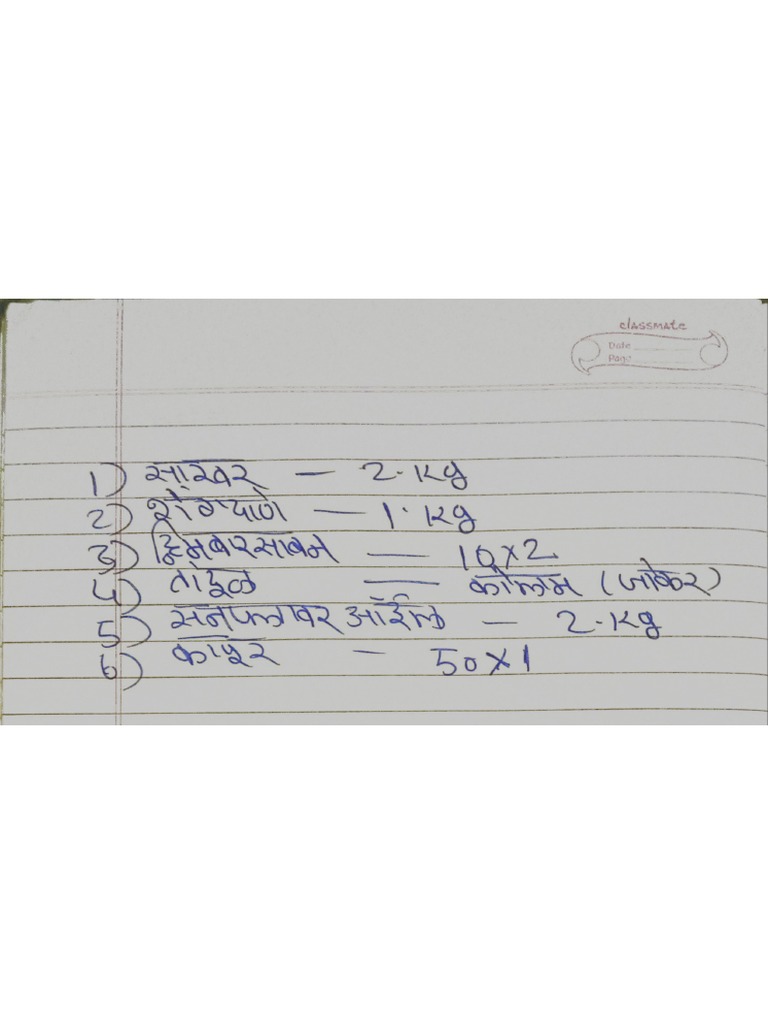 classmate
Date
Page
1) साखर — 2.kg
2) शेंगदाणे — 1.kg
3) डिमबारसाबन — 10x2
4) तांदूळ — कोलम (जोकर)
5) सनफ्लावर ऑईल — 2.kg
6) कापूर — 50x1